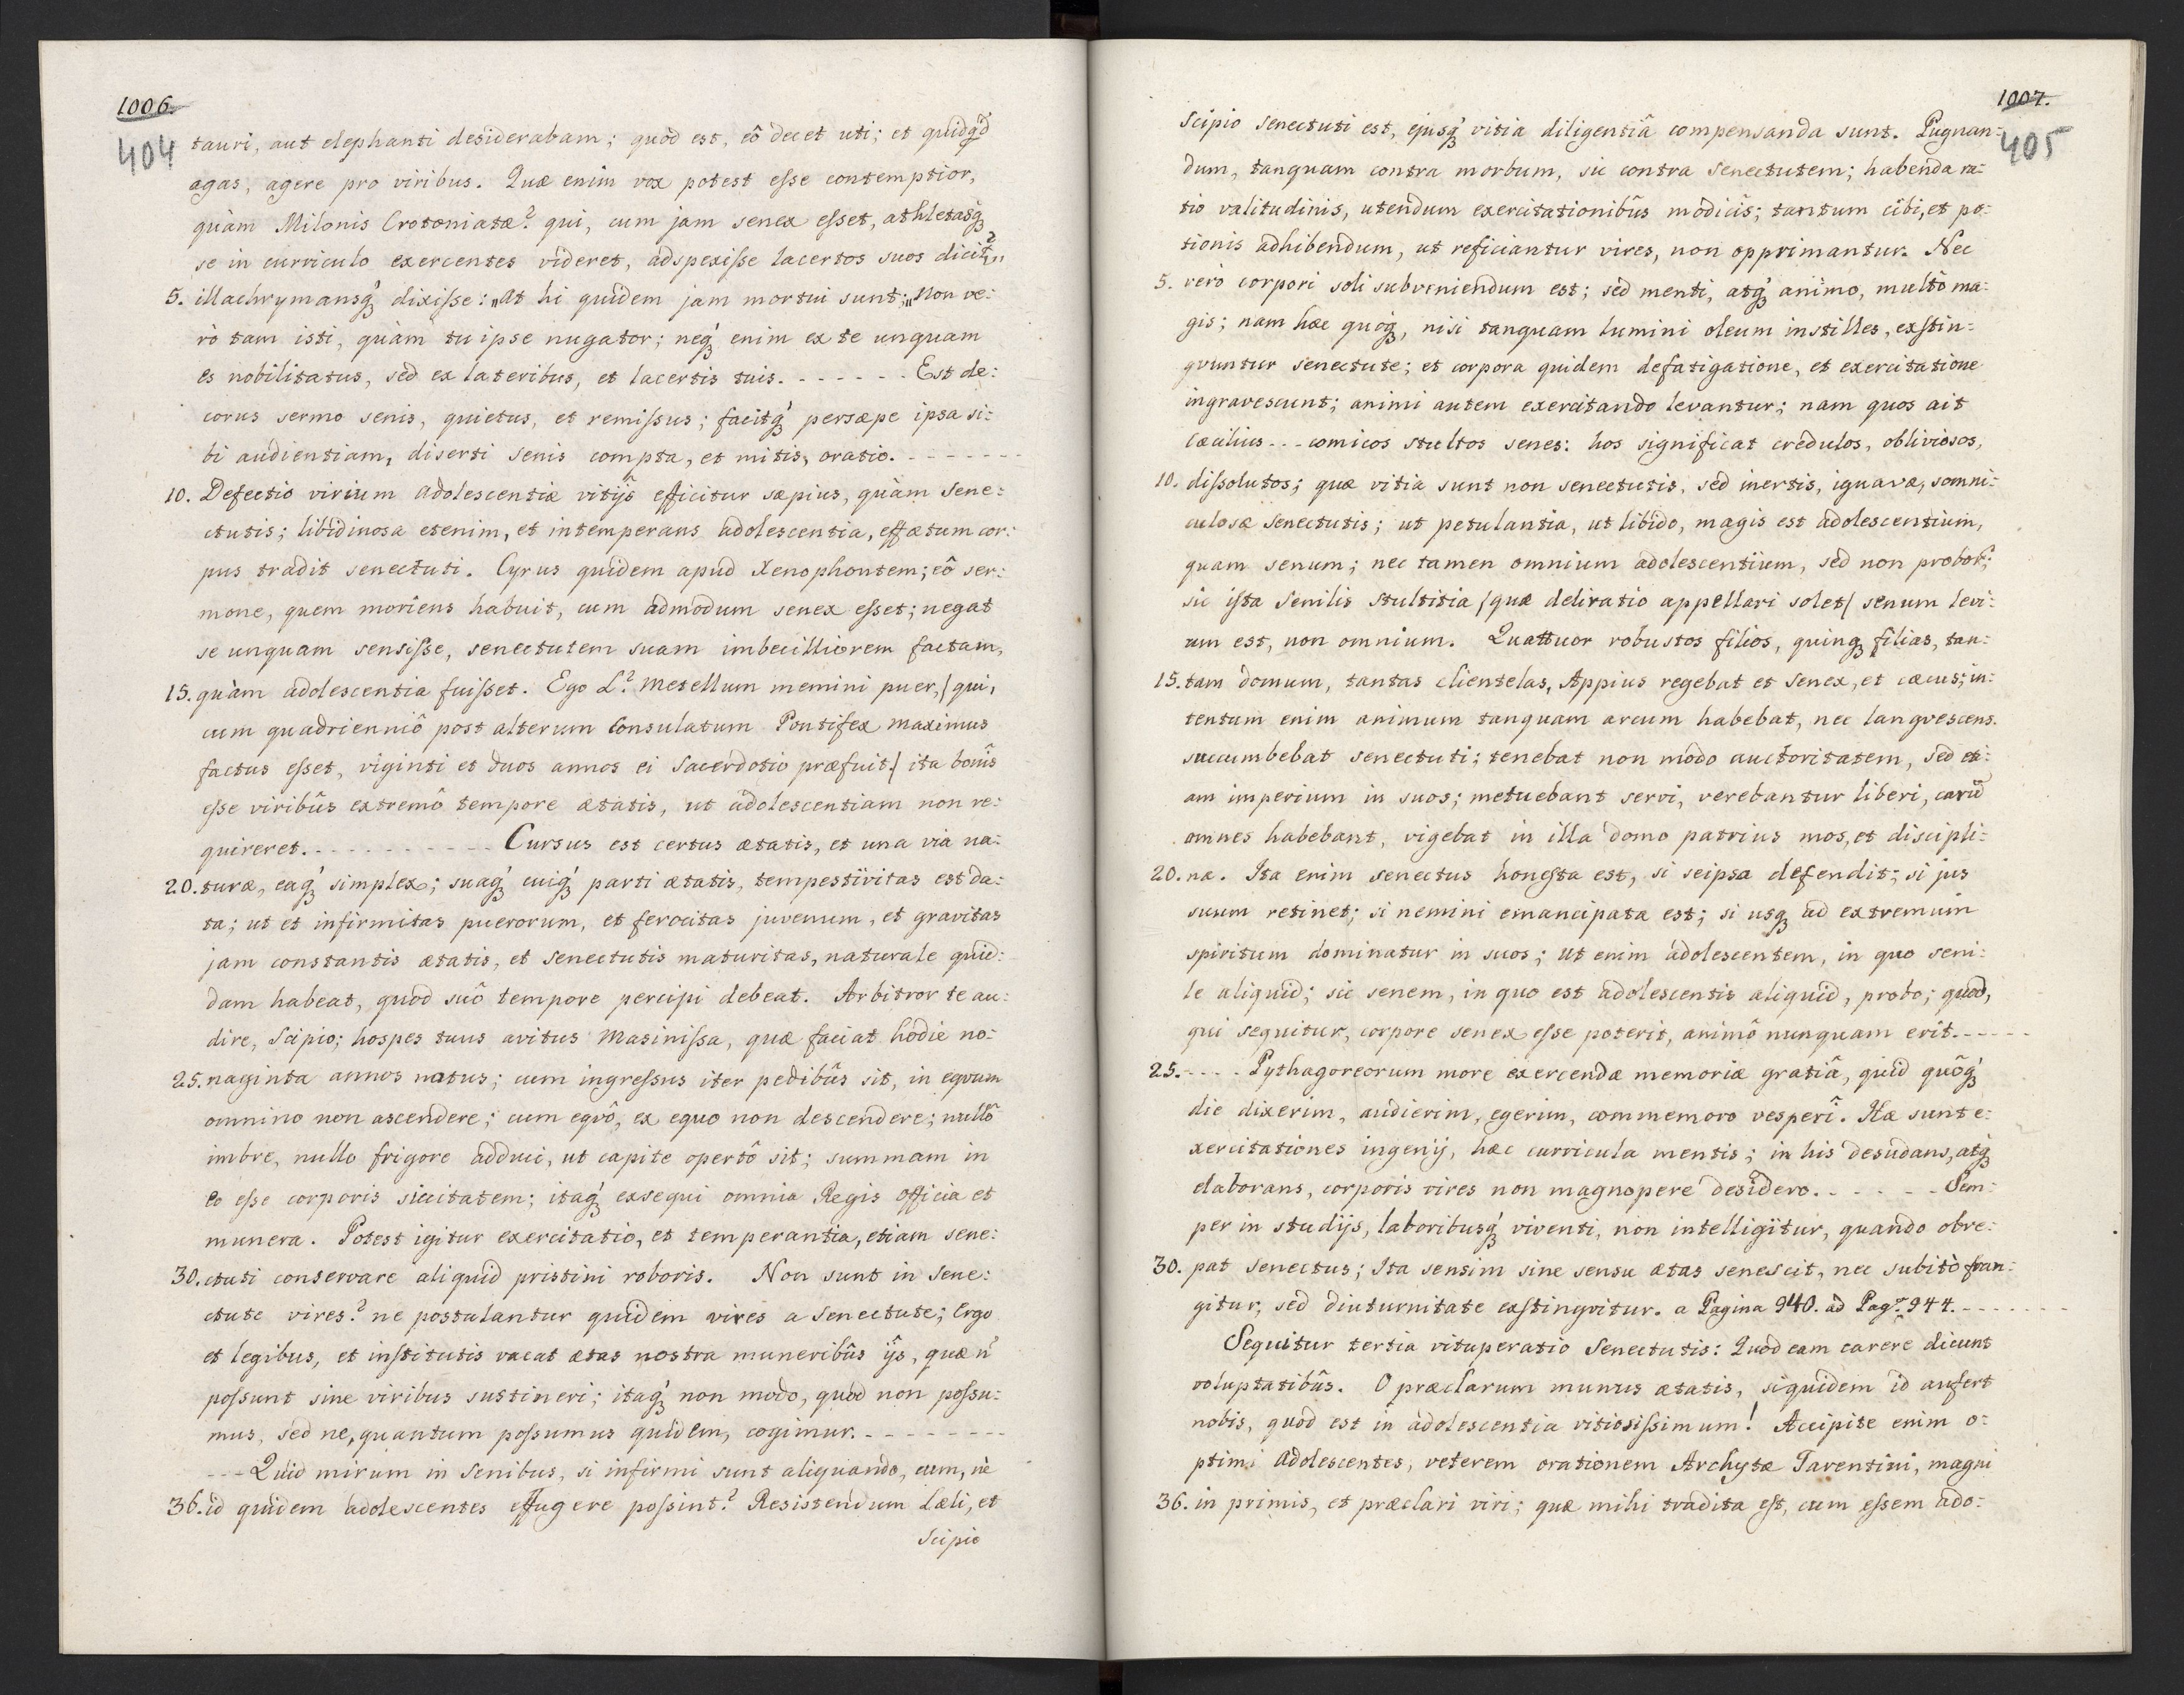 1006.
404
tauri, aut elephanti desiderabam; quod est, eô decet uti; et quidqd
agas, agere pro viribus. Quæ enim vox potest eſse contemptior,
quàm Milonis Crotoniatæ? qui, cum jam senex eſset, athletasq́
se in curriculo exercentes videret, adspexiſse lacertos suos dicit̃„
5. illachrymansq́ dixiſse: „At hi quidem jam mortui sunt;„ Non ve:
rò tam isti, quàm tu ipse nugator; neq́ enim ex te unquam
es nobilitatus, sed ex lateribus, et lacertis tuis. - - - - - - Est de:
corus sermo senis, quietus, et remiſsus; facitq́ persæpe ipsa si:
bi audientiam, diserti senis compta, et mitis, oratio. - - - - - - -
10. Defectio virium adolescentiæ vitijs efficitur sæpius, quàm sene:
ctutis; libidinosa etenim, et intemperans adolescentia, effætum cor:
pus tradit senectuti. Cyrus quidem apud Xenophontem; eô ser:
mone, quem moriens habuit, cum admodum senex eſset; negat
se unquam sensiſse, senectutem suam imbecilliorem factam,
15. quàm adolescentia fuiſset. Ego L? Metellum memini puer, /qui,
cum quadrienniô post alterum Consulatum Pontifex Maximus
factus eſset, viginti et duos annos ei Sacerdotio præfuit/ ita bonis
eſse viribûs extremô tempore ætatis, ut adolescentiam non re:
quireret. - - - - - - - - - - - Cursus est certus ætatis, et una via na:
20. turæ, eaq́ simplex; suaq́ cuiq́ parti ætatis, tempestivitas est da:
ta; ut et infirmitas puerorum, et ferocitas juvenum, et gravitas
jam constantis ætatis, et senectutis maturitas, naturale quid:
dam habeat, quod suô tempore percipi debeat. Arbitror te au:
dire, Scipio; hospes tuus avitus Masiniſsa, quæ faciat hodie no:
25. naginta annos natus; cum ingreſsus iter pedibûs sit, in eqvum
omnino non ascendere; cum eqvô, ex equo non descendere; nullô
imbre, nullo frigore adduci, ut capite opertô sit; summam in
eo eſse corporis siccitatem; itaq́ exsequi omnia Regis officia et
munera. Potest igitur exercitatio, et temperantia, etiam sene:
30. ctuti conservare aliquid pristini roboris. Non sunt in Sene:
ctute vires? ne postulantur quidem vires a Senectute; Ergo
et legibus, et institutis vacat ætas nostra muneribûs ijs, quæ ñ
poſsunt sine viribus sustineri; itaq́ non modo, quod non poſsu:
mus, sed ne, quantum poſsumus quidem, cogimur. - - - - - - - -
- - - Quid mirum in Senibus, si infirmi sunt aliquando, cum, ne
36. id quidem adolescentes effugere poſsint? Resistendum Læli, et
Scipio
1007.
405
Scipio senectuti est, ejusq́ vitia diligentiâ compensanda sunt. Pugnan:
dum, tanquam contra morbum, sic contra Senectutem; habenda ra:
tio valitudinis, utendum exercitationibûs modicis; tantum cibi, et po:
tionis adhibendum, ut reficiantur vires, non opprimantur. Nec
5. verò corpori soli subveniendum est; sed menti, atq́ animo, multò ma:
gis; nam hæc quóq́, nisi tanquam lumini oleum instilles, exstin:
gvuntur senectute; et corpora quidem defatigatione, et exercitatione
ingravescunt; animi autem exercitando levantur; nam quos ait
Cæcilius - - - comicos stultos senes: hos significat credulos, obliviosos,
10. diſsolutos; quæ vitia sunt non senectutis, sed inertis, ignavæ, somni:
culosæ Senectutis; ut petulantia, ut libido, magis est adolescentium,
quam senum; nec tamen omnium adolescentium, sed non probor̃;
sic ista Senilis stultitia /quæ deliratio appellari solet/ senum levi:
um est, non omnium. Quattuor robustos filios, quinq́ filias, tan:
15. tam domum, tantas clientelas, Appius regebat et Senex, et cæcus; in:
tentum enim animum tanquam arcum habebat, nec langvescens.
succumbebat senectuti; tenebat non modo auctoritatem, sed eti:
am imperium in suos; metuebant servi, verebantur liberi, carũ
omnes habebant, vigebat in illa domo patrius mos, et discipli:
20. na. Ita enim senectus honesta est, si seipsa defendit; si jus
suum retinet; si nemini emancipata est; si usq́ ad extremum
spiritum dominatur in suos; ut enim adolescentem, in quo seni:
le aliquid; sic senem, in quo est adolescentis aliquid, probo; quod,
qui sequitur, corpore senex eſse poterit, animô nunquam erit. - - - - -
25. - - - - Pythagoreorum more exercendæ memoriæ gratiâ, quid quôq́
die dixerim, audierim, egerim, commemoro vesperî. Hæ sunt e:
xercitationes ingenij, hæc curricula mentis; in his desudans, atq́
elaborans, corporis vires non magnopere desidero. - - - - - - Sem:
per in studijs, laboribusq́ viventi, non intelligitur, quando obre:
30. pat Senectus; Ita sensim sine sensu ætas senescit, nec subitò fran:
gitur, sed diuturnitate exstingvitur. a Pagina 940. ad Pag: 944. - - - - - - -
Sequitur tertia vituperatio Senectutis: Quod eam carere dicunt
voluptatibûs. O præclarum munus ætatis, siquidem id aufert
nobis, quod est in adolescentia vitiosiſsimum! Accipite enim o:
ptimi Adolescentes, veterem orationem Archytæ Tarentini, magni
36. in primis, et præclari viri; quæ mihi tradita est, cum eſsem ado: